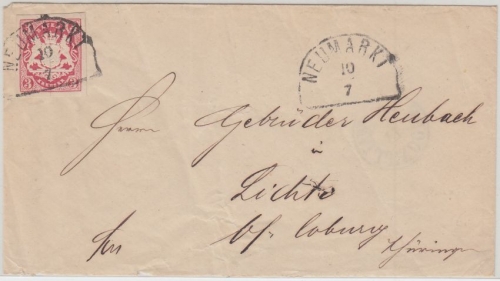 NEUMARKT
10
7
3
NEUMARKT
10
7
Herren Gebrüder Heubach
in
Lichte
bf. Coburg
Thüringen